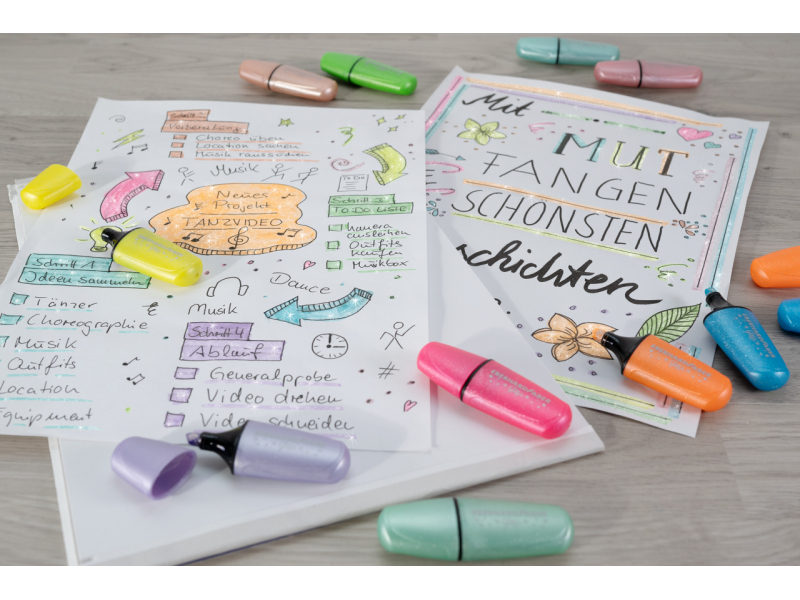 Schritt 2
Vorbereitung
Choreo üben
Location suchen
Musik raussuchen
Musik
Neues
Projekt
TANZVIDEO
To Do
Schritt 3
TO-DO LISTE
Kamera
ausleihen
Outfits
kaufen
Musikbox
Schritt 1
Ideen sammeln
Tänzer
Choreographie
Musik
Outfits
Location
Equipment
Musik
Dance
Schritt 4
Ablauf
Generalprobe
Video drehen
Video schneiden
#
Mit
MUT
FANGEN
SCHÖNSTEN
schichten